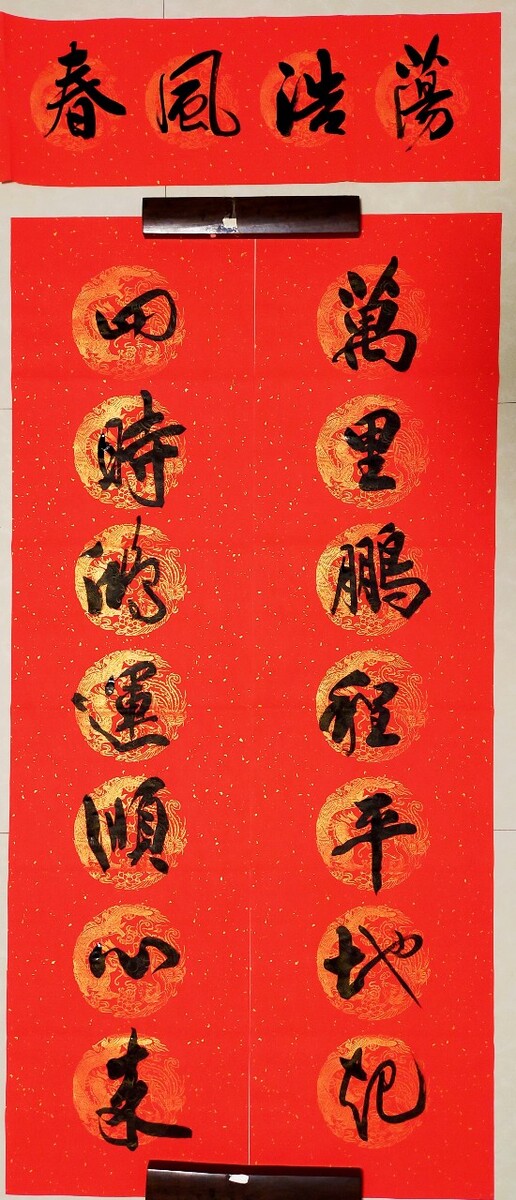 春風浩蕩
萬里鵬程平地起
四時鴻運順心來